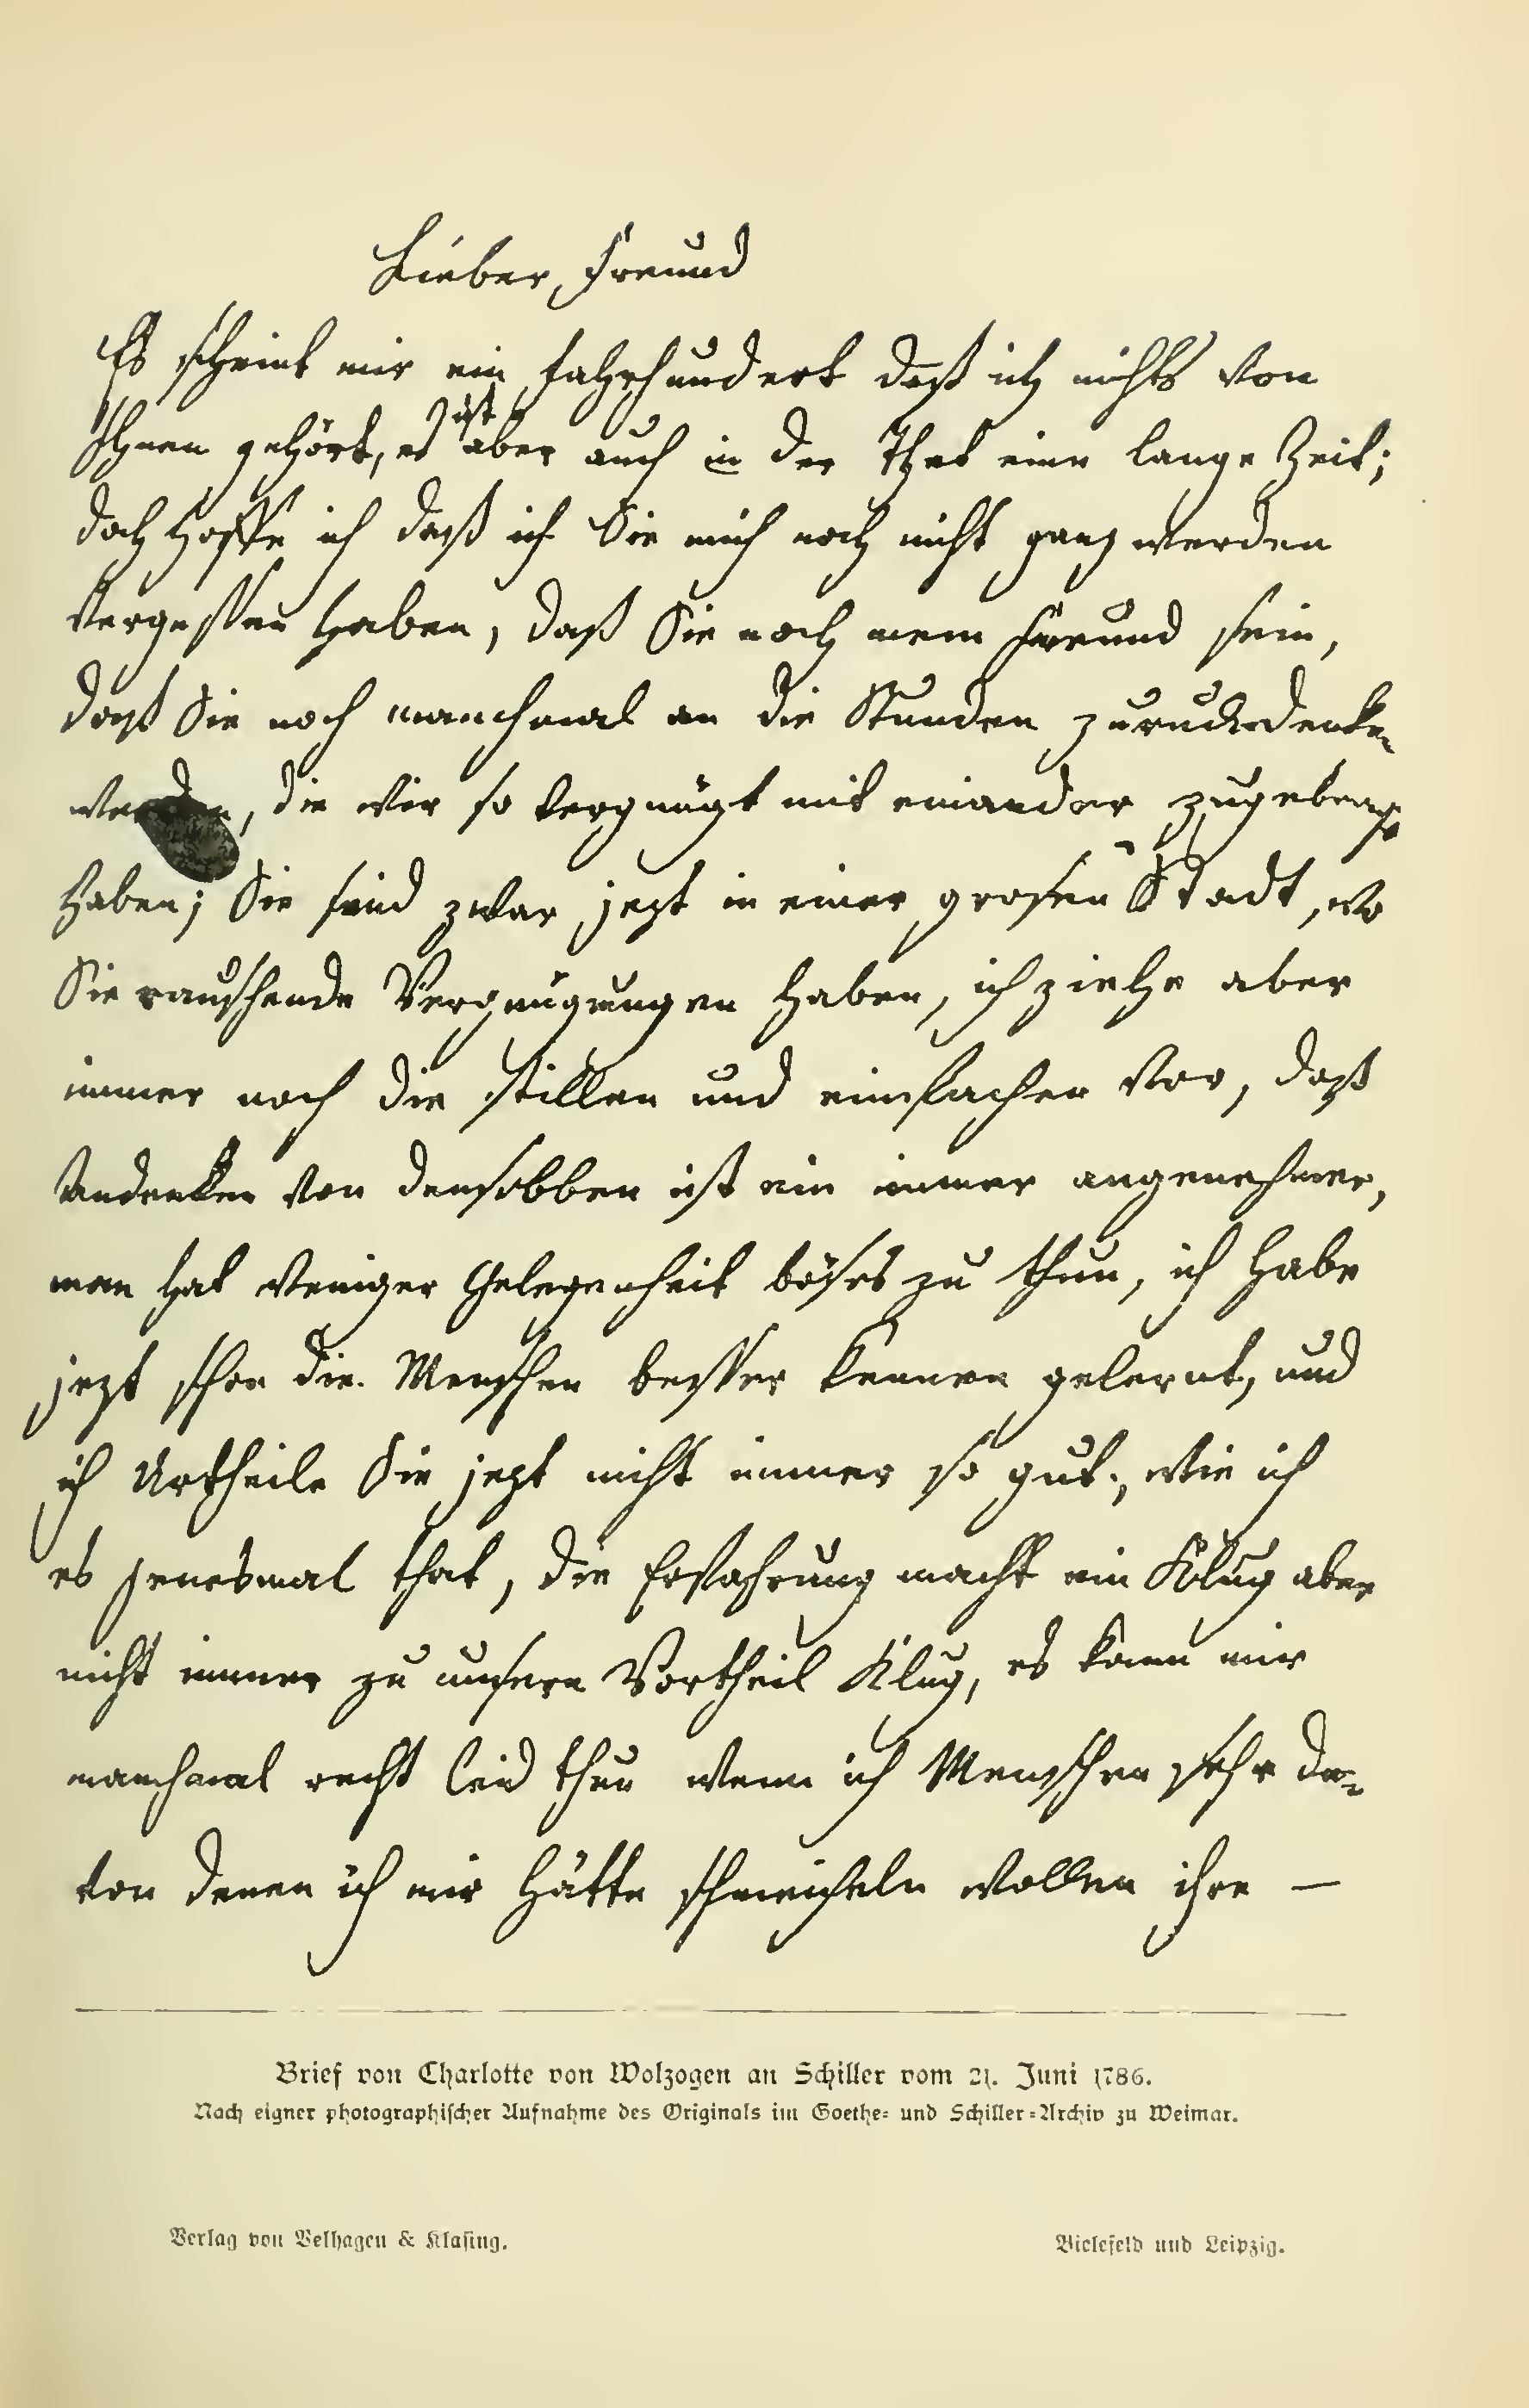 Lieber Freund
Es scheint mir ein Jahrhundert daß ich nichts von
Ihnen gehört, es ist aber auch in der That eine lange Zeit;
doch hoffe ich daß ich Sie mich noch nicht ganz werden
vergessen haben, daß Sie noch mein Freund sein,
daß Sie noch manchmal an die Stunden zurückdenken
werden, die wir so vergnügt mit einander zugebracht
haben; Sie sind zwar jezt in einer grosen Stadt, wo
Sie rauschende Vergnügungen haben, ich ziehe aber
immer noch die stillen und einfachen vor, daß
Andenken von denselben ist ein immer angenehmer,
man hat weniger Gelegenheit böses zu thun, ich habe
jezt schon die Menschen besser kennen gelernt, und
ich Urtheile Sie jezt nicht immer so gut, wie ich
es jenesmal that, die Erfahrung macht ein Klug aber
nicht immer zu unsern Vortheil Klug, es kann mir
manchmal recht leid thun wenn ich Menschen sehe
von denen ich mir hätte schmeicheln wollen ihre —
Brief von Charlotte von Wolzogen an Schiller vom 21. Juni 1786.
Nach eigner photographischer Aufnahme des Originals im Goethe- und Schiller-Archiv zu Weimar.
Verlag von Velhagen & Klasing. Bielefeld und Leipzig.